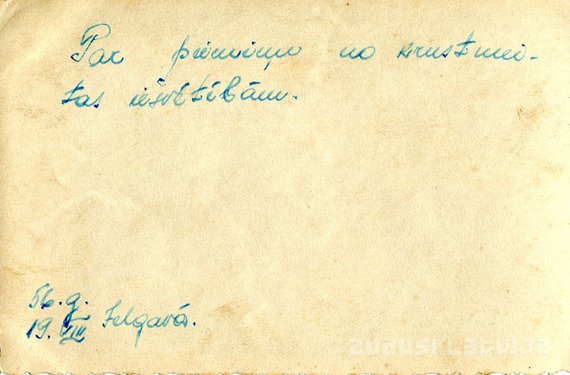 Par piemiņu no krustmei-
tas iesvētībām.
56.g.
19.VIII Jelgavā.
zudusi Latvija